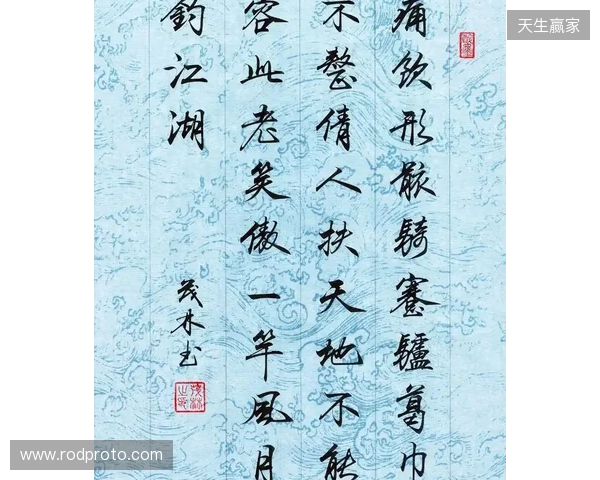 痛饮形骸騎蹇驢葛巾
不整倩人扶天地不能
容此老笑傲一竿風月
釣江湖
茂林书
天生赢家
www.rodproto.com